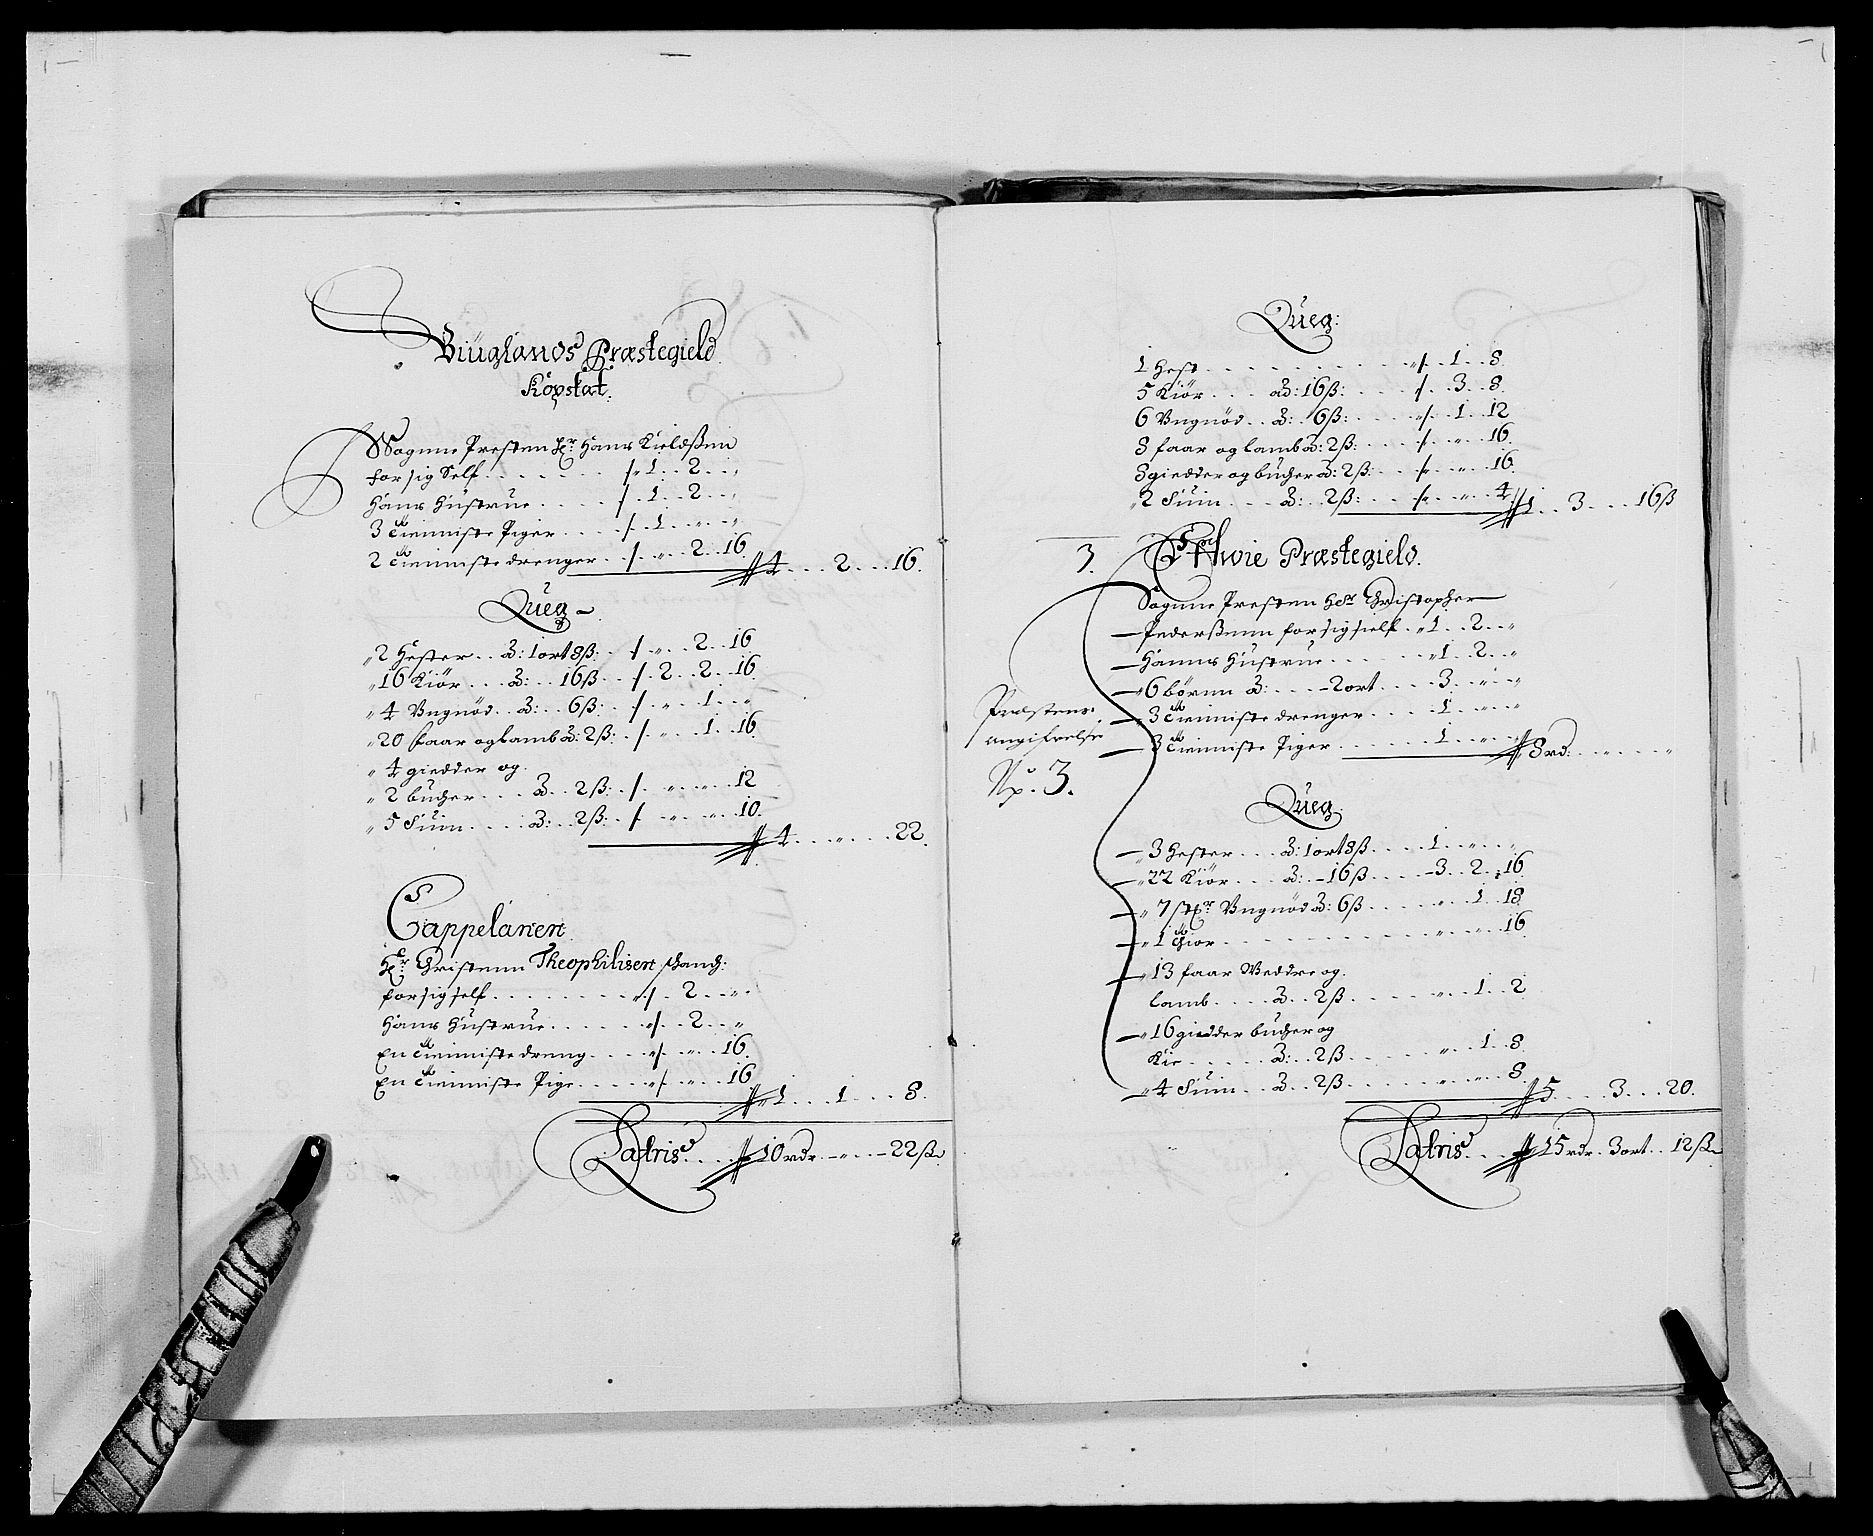 Biuglands Præstegield
Kopskat.
Sogne Presten Hr. Hans Kieldßen
for sig Self . . . . . /. 1 . . 2 . . „
Hans Hustrue . . . . /. 1 . . 2 . . „
3 tienniste Piger . . . . /. 1 . . „ . . „
2 tienniste drenger . . /. „ . . 2 . . 16.
4 . . . 2 . . . 16.
Queg
„2 Hester . . á: 1 ort 8ß: . . /. „ . . 2 . . 16
„16 Kiör . . . á: . . 16ß . . /. 2 . . 2 . . 16.
„4 Vngnöd . . á: . . 6ß: . . /. „ . . 1 . . „
„20 faar og lamb á: 2ß: . . /. „ . . 1 . . 16.
„4 giedder og
„2 bucher . . . á . . 2ß: . . /. „ . . „ . . 12
„5 Suin . . . . á: . . 2ß: . . /. „ . . „ . . 10.
4 . . . „ . . . 22.
Cappelanen
Hr. Christenn Theophilisen
for sig self . . . . . . . „/. . 2 . . „
Hans Hustrue . . . . . . „/. . 2 . . „
En tienniste dreng . . . . „/. „ . . 16.
En tienniste Pige . . . . . „/. „ . . 16
„1 . . . 1 . . . 8.
Latris . . . 10 rdr . - „ . - 22ß
Queg:
1 Hest . . . . . . . . . „/. . 1 . . 8.
5 Kiör . . . ad: 16ß: . . . . /. . 3 . . 8.
6 Vngnöd . . á: . 6ß: . . . . „/. . 1 . . 12
8 faar og lamb á: 2ß: . . . /. . „ . . 16.
8 giedder og bucher á: 2ß: . . . /. . „ . . 16.
„2 Suin . . . á: . . 2ß: . . . /. . „ . . 4.
1 . . 3 . . . 16ß
3. Præstegield.
Sogne Presten Her Christopher
Pederßenn for sig sielf . „1 . . 2 . . „
Hanns Hustrue . . . . . . „1 . . 2 . . „
„6 börnn á: . . . - 2 ort . . . . 3 . . „ . . „
„3 tienniste drenger . . . . 1 . . „ . . „
„3 tienniste Piger . . . . . . 1 . . „ . . „
8 rd: . . . „ . . . „
Præstens
angifvelse
No. 3.
Queg
„3 Hester . . . á: 1 ort 8ß . . . . 1 . . „ . . „
„22 Kiör . . . á: . - 16ß . . . . - 3 . . 2 . . 16.
„7 Vngnöd á: 6ß . . . . . „ . . 1 . . 18
„1 thior . . . . . . . . . . „ . . „ . . 16
„13 faar Veddre og
lamb . . . . á . . 2ß . . . . . „ . . 1 . . 2
„16 giedder bucher og
Kie . . . . . á: . . 2ß . . . . . „ . . 1 . . 8
„4 Suin . . á . . 2ß . . . . . . „ . . „ . . 8.
5 . . . 3 . . . 20.
Latris . . . 15 rdr . 3 ort . . 12ß